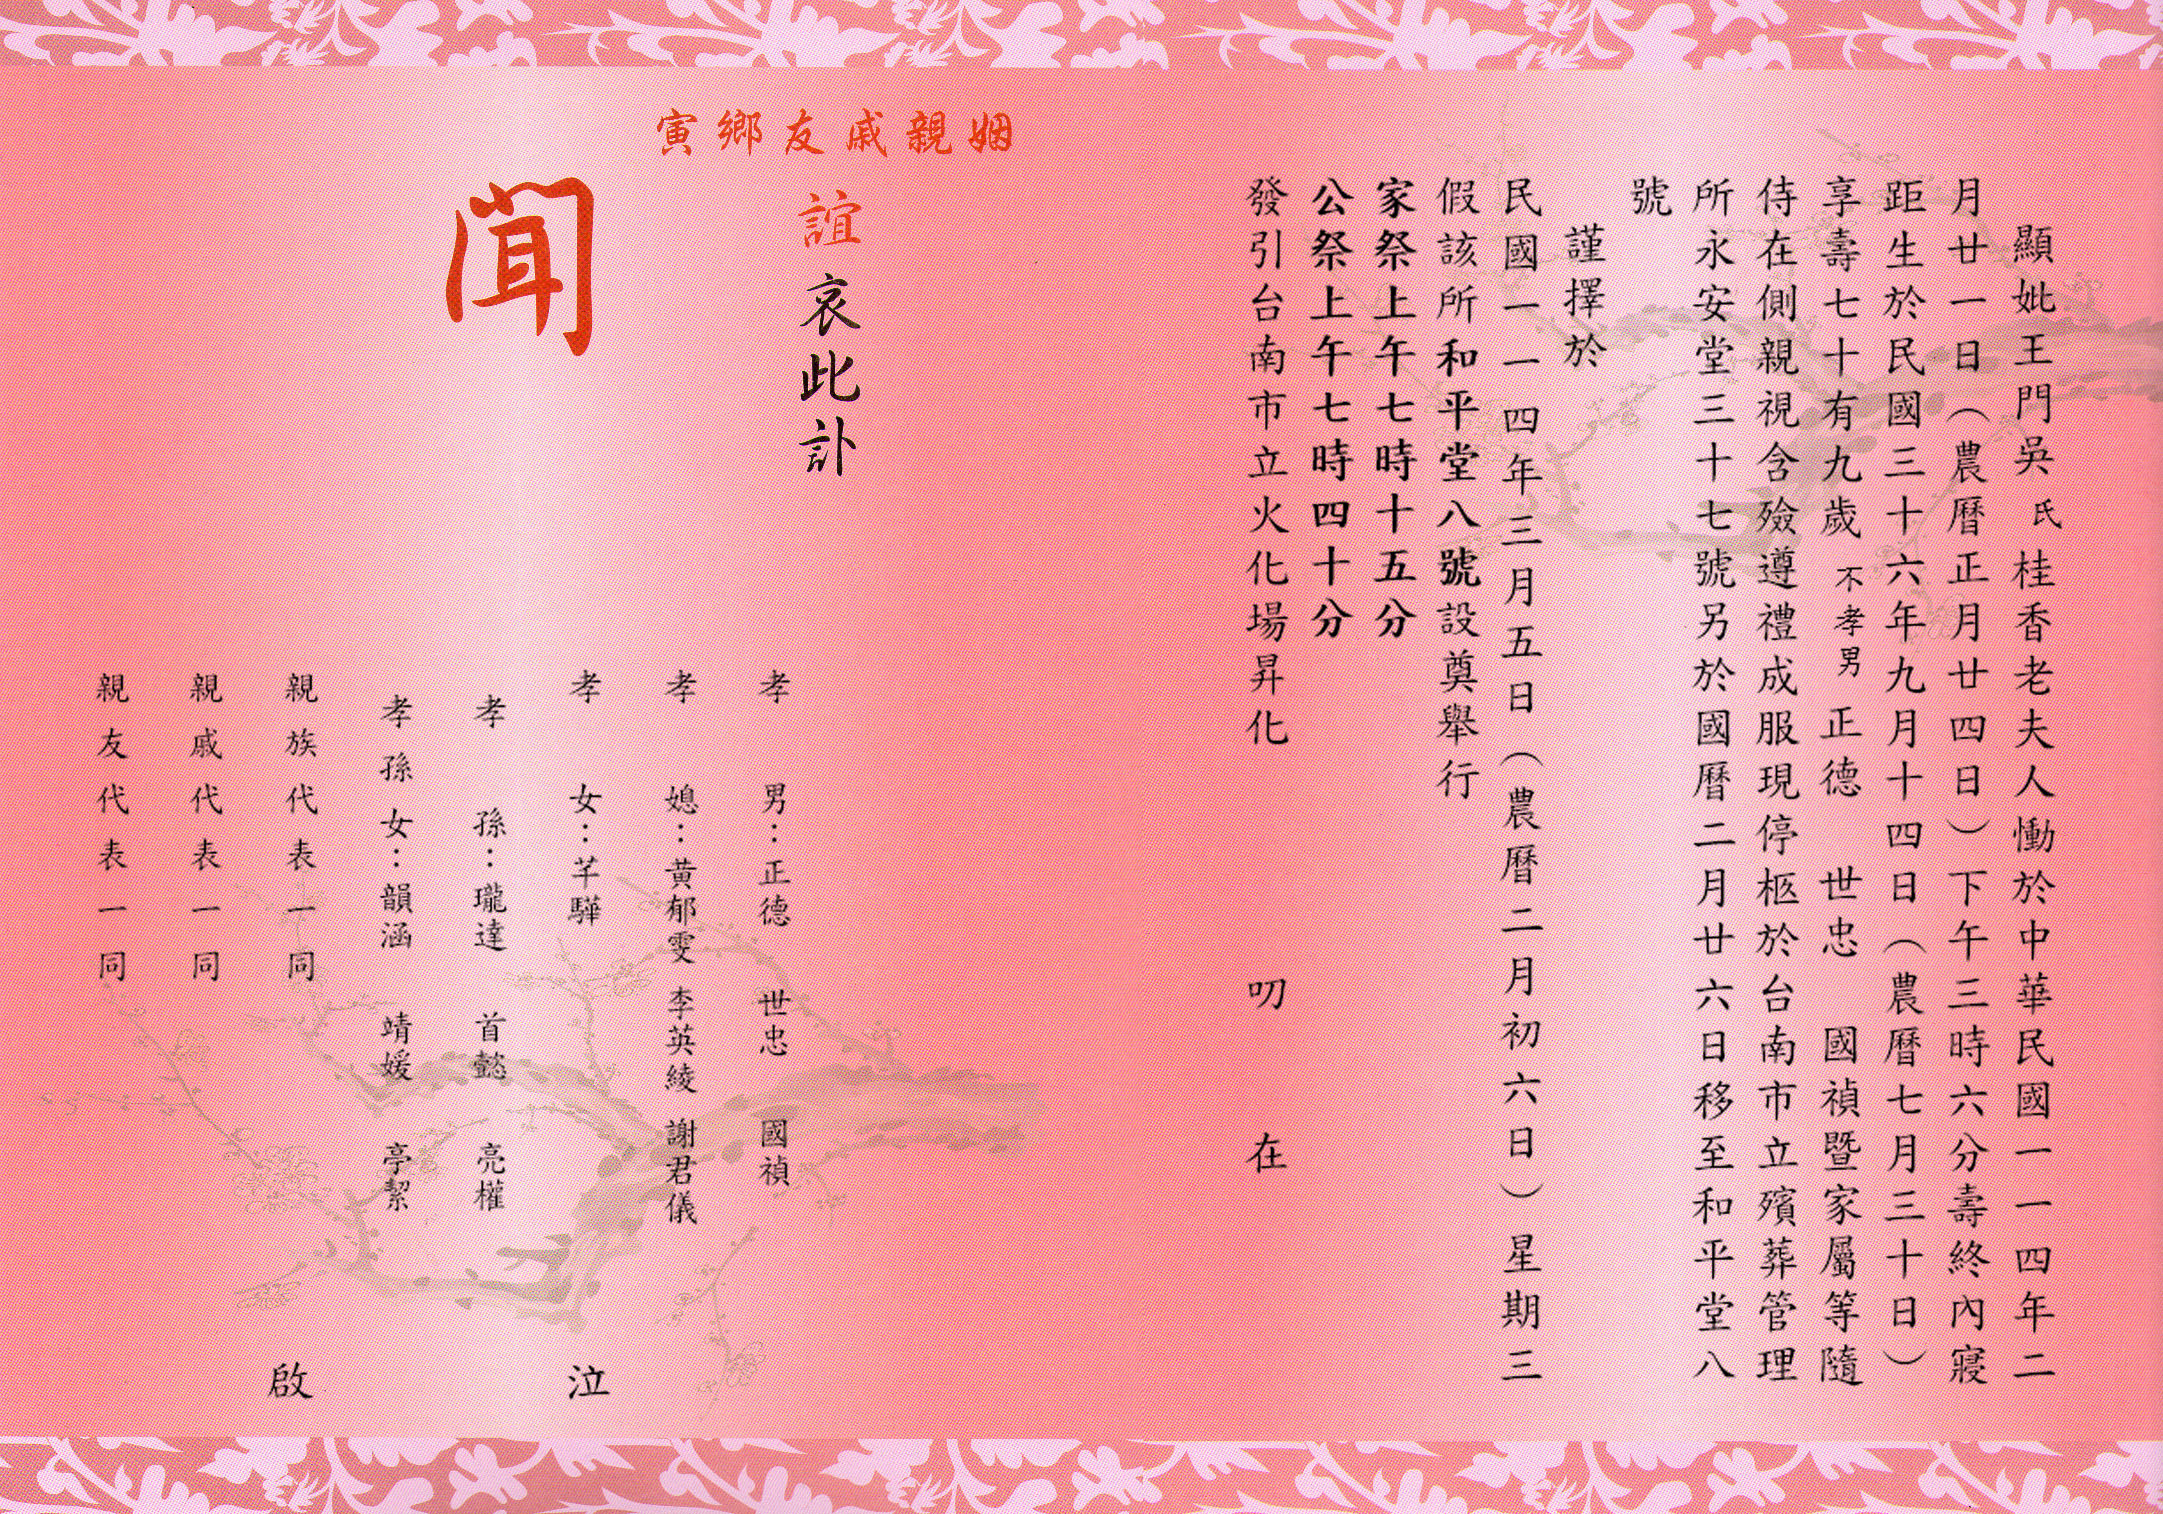 顯妣王門吳氏桂香老夫人慟於中華民國一一四年二
月廿一日（農曆正月廿四日）下午三時六分壽終內寢
距生於民國三十六年九月十四日（農曆七月三十日）
享壽七十有九歲 不孝男 正德 世忠 國禎暨家屬等隨
侍在側親視含殮遵禮成服現停柩於台南市立殯葬管理
所永安堂三十七號另於國曆二月廿六日移至和平堂八
號
謹擇於
民國一一四年三月五日（農曆二月初六日）星期三
假該所和平堂八號設奠舉行
家祭上午七時十五分
公祭上午七時四十分
發引台南市立火化場昇化
叨 在
姻親戚友鄉寅
誼 哀此訃
聞
孝 男：正德 世忠 國禎
孝 媳：黃郁雯 李英綾 謝君儀
孝 女：芊驊
孝 孫：瓏達 首懿 亮權
孝孫女：韻涵 靖媛 亭絜
親族代表一同
親戚代表一同
親友代表一同
泣
啟